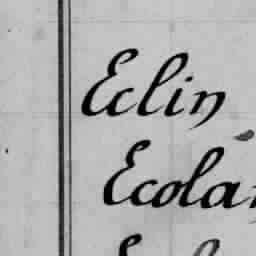 Eclin
Ecola